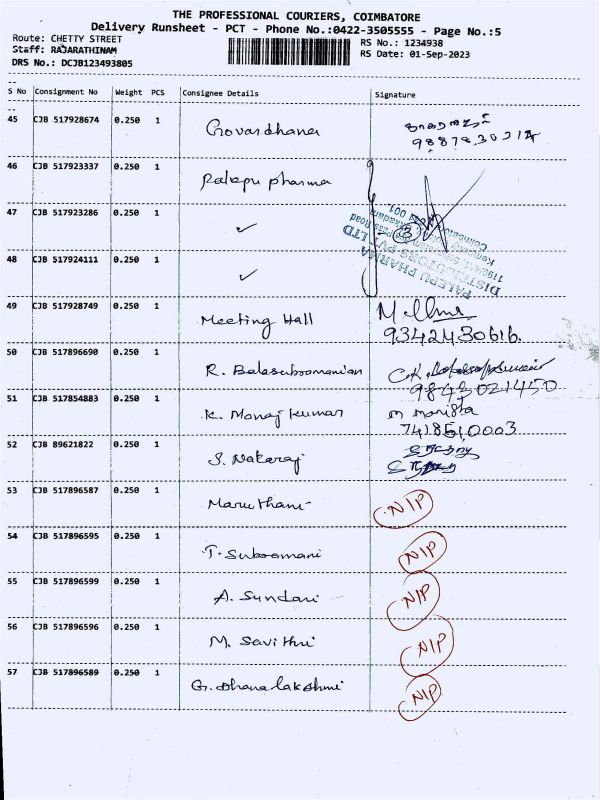 THE PROFESSIONAL COURIERS, COIMBATORE
Delivery Runsheet - PCT - Phone No.:0422-3505555 - Page No.:5
Route: CHETTY STREET
RS No.: 1234938
Staff: RAJARATHINAM
RS Date: 01-Sep-2023
DRS No.: DCJB123493805
S No Consignment No Weight PCS Consignee Details Signature
45 CJB 517928674 0.250 1 Govardhana
46 CJB 517923337 0.250 1 Palepu pharma
47 CJB 517923286 0.250 1 ✓
48 CJB 517924111 0.250 1 ✓
PALEPU PHARMA
DISTRIBUTIONS PVT LTD
49 CJB 517928749 0.250 1 Meeting Hall
9342430616.
50 CJB 517896690 0.250 1 R. Balasubramanian C.K.
9843021450
51 CJB 517854883 0.250 1 K. Manoj kumar
7418510003
52 CJB 89621822 0.250 1 S. Nataraj
53 CJB 517896587 0.250 1 Maruthani N/P
54 CJB 517896595 0.250 1 T. Subramani N/P
55 CJB 517896599 0.250 1 A. Sundari N/P
56 CJB 517896596 0.250 1 M. Savithri N/P
57 CJB 517896589 0.250 1 G. Dhanalakshmi N/P